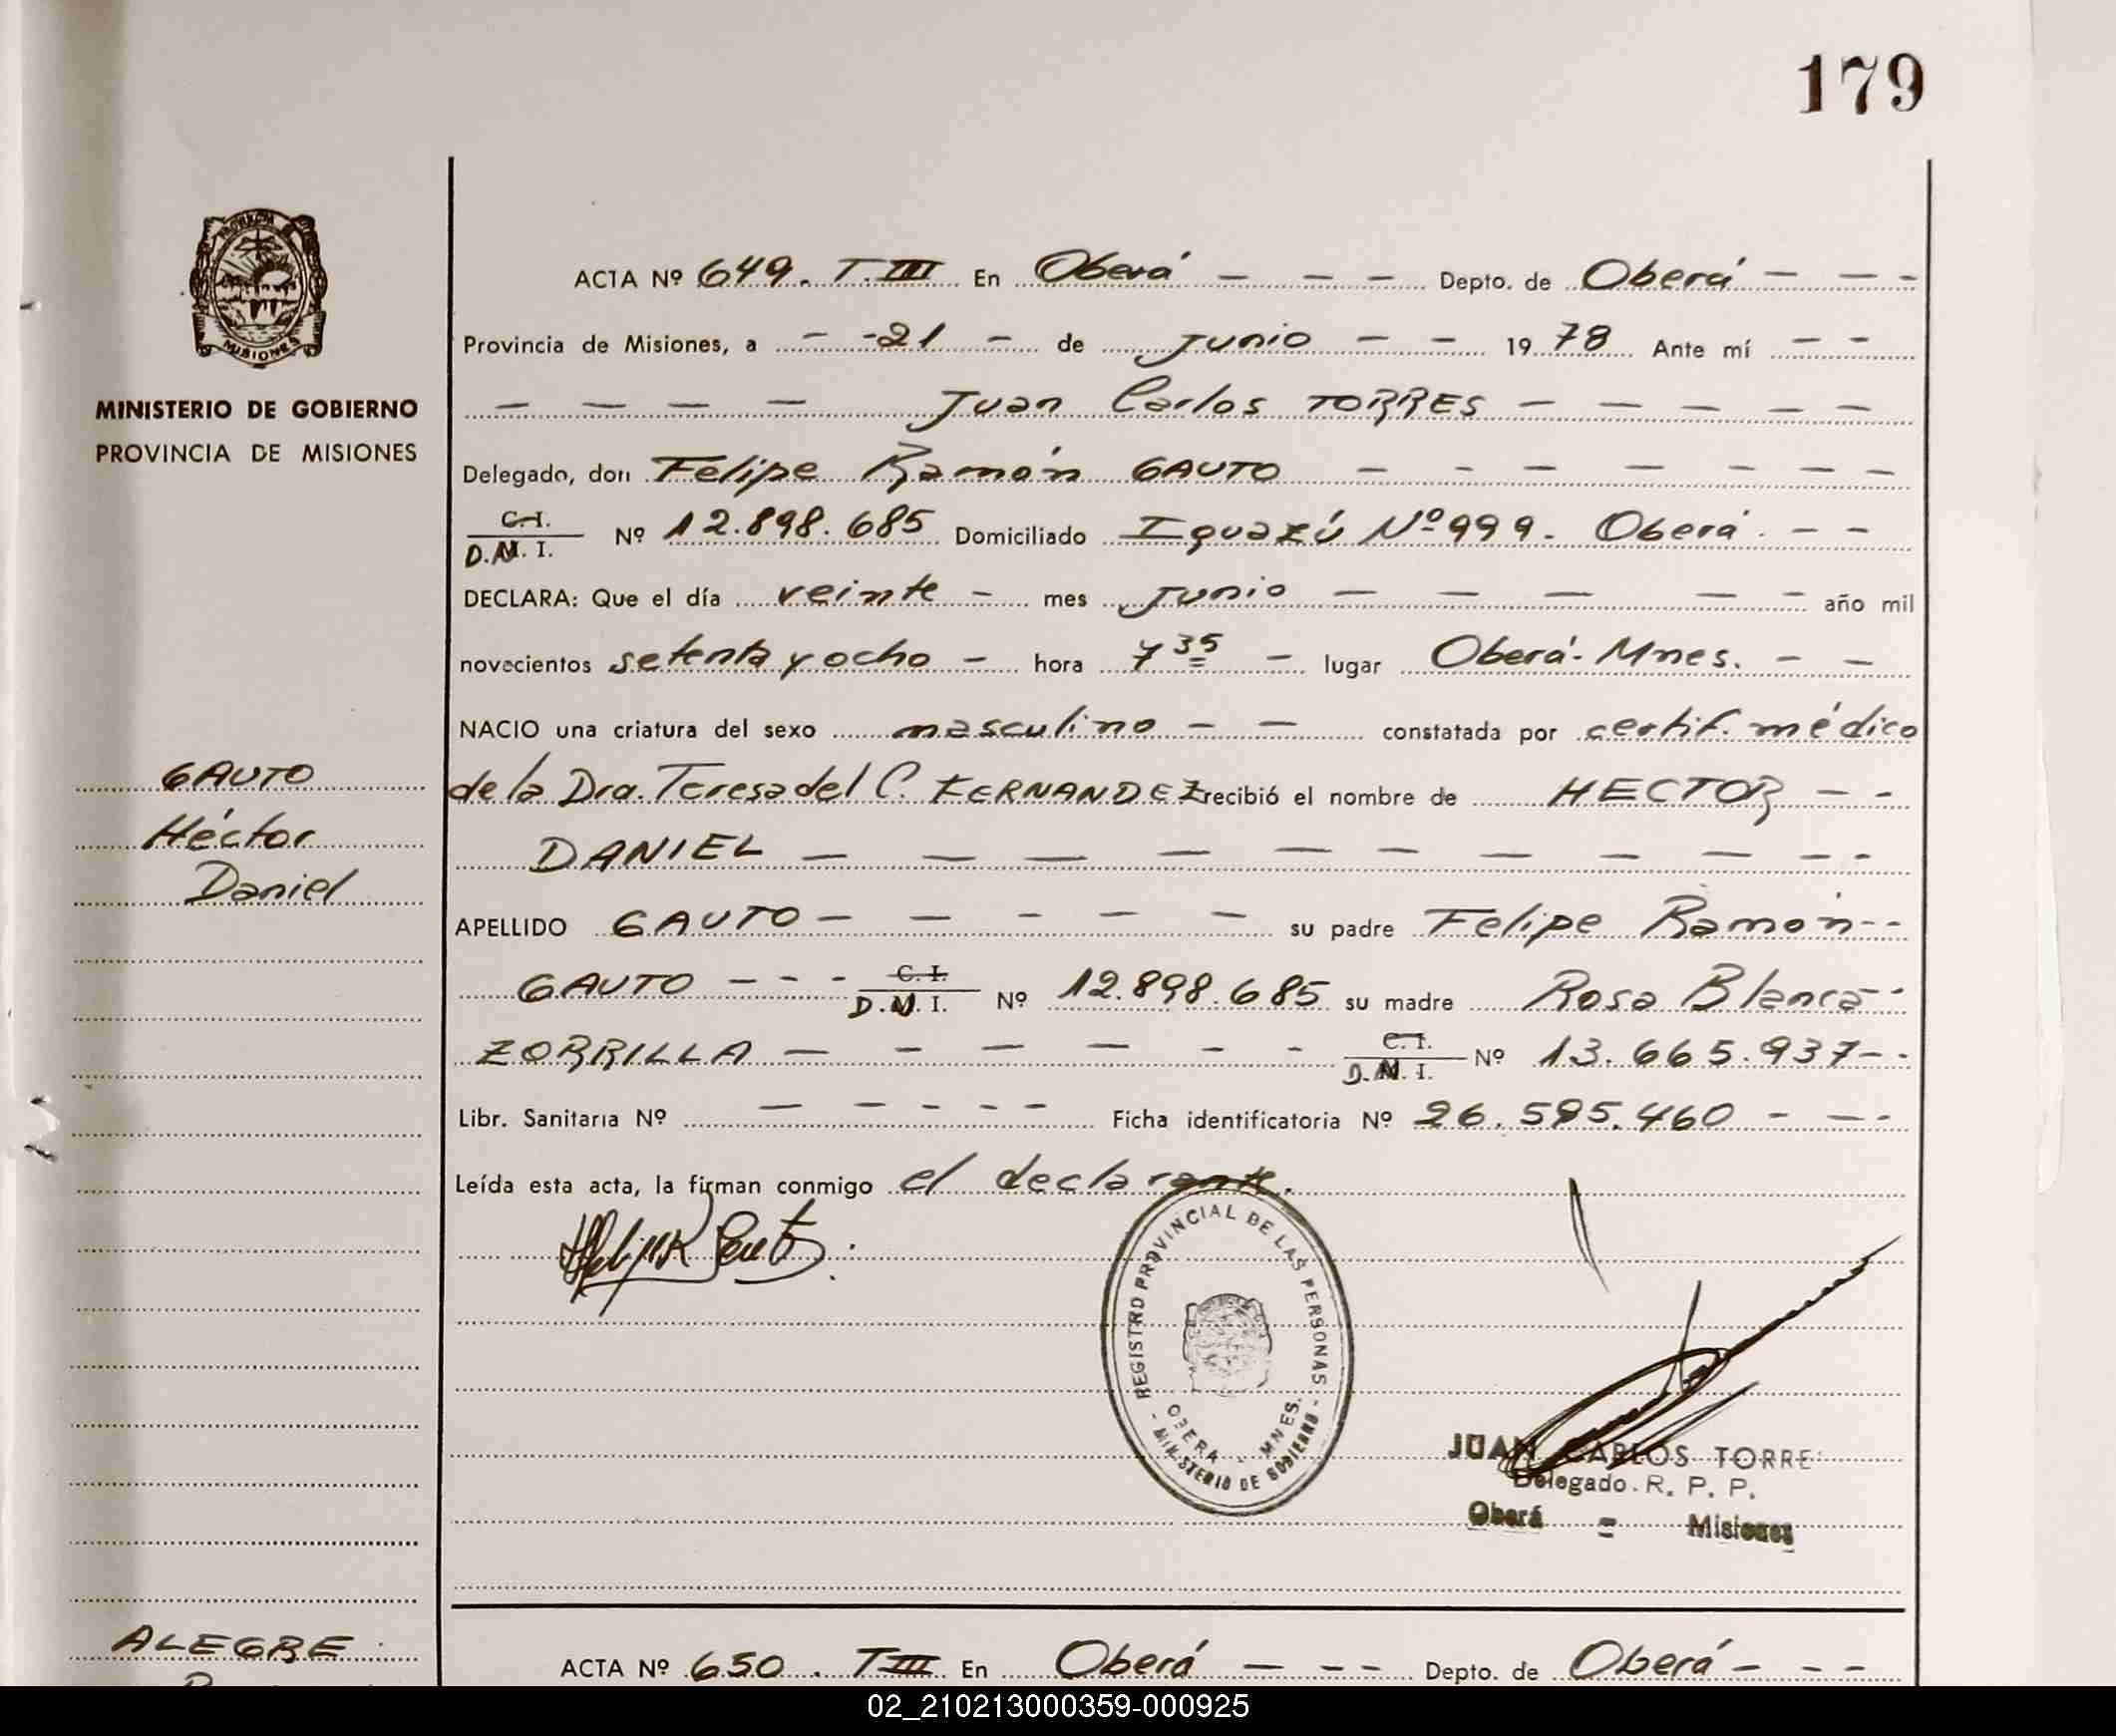 179
PROVINCIA DE
MISIONES
MINISTERIO DE GOBIERNO
PROVINCIA DE MISIONES
ACTA Nº 649. T. III En Oberá - - - Depto. de Oberá - - -
Provincia de Misiones, a - - 21 - de Junio - - 1978 Ante mí - -
- - - - Juan Carlos TORRES - - - - -
Delegado, don Felipe Ramón GAUTO - - - - - - -
C. I.
D.M. I. Nº 12.898.685 Domiciliado Iguazú Nº 999. Oberá. - -
DECLARA: Que el día veinte - mes Junio - - - - - año mil
novecientos setenta y ocho - hora 7 35 - lugar Oberá - Mnes. - -
NACIO una criatura del sexo masculino - - constatada por certif. médico
de la Dra. Teresa del C. FERNANDEZ recibió el nombre de HECTOR - -
DANIEL - - - - - - - - - - -
APELLIDO GAUTO - - - - - su padre Felipe Ramón - -
GAUTO - - - C. I.
D.M. I. Nº 12.898.685 su madre Rosa Blanca -
ZORRILLA - - - - - - C. I.
D.M. I. Nº 13.665.937 - -
Libr. Sanitaria Nº - - - - - Ficha identificatoria Nº 26.595.460 - - -
Leída esta acta, la firman conmigo el declarante.
GAUTO
Héctor
Daniel
REGISTRO PROVINCIAL DE LAS PERSONAS
OBERA - MNES.
- MINISTERIO DE GOBIERNO -
JUAN CARLOS TORRE
Delegado. R. P. P.
Oberá = Misiones
ALEGRE
ACTA Nº 650. T III En Oberá - - - - Depto. de Oberá - - -
02_210213000359-000925